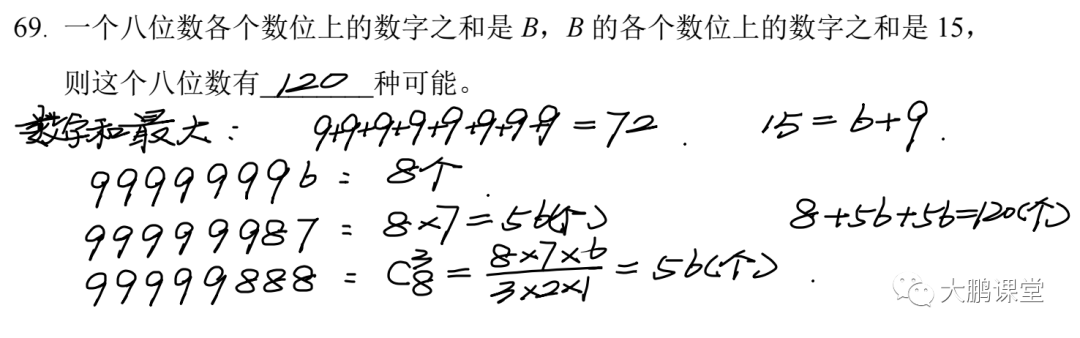 69. 一个八位数各个数位上的数字之和是 B，B 的各个数位上的数字之和是 15，
则这个八位数有 120 种可能。
数字和最大： 9+9+9+9+9+9+9+9=72 . 15=6+9.
99999996 = 8个 .
99999987 = 8×7=56(个) 8+56+56=120(个)
99999888 = C³₈ = 8×7×6/3×2×1 = 56(个) .
大鹏课堂